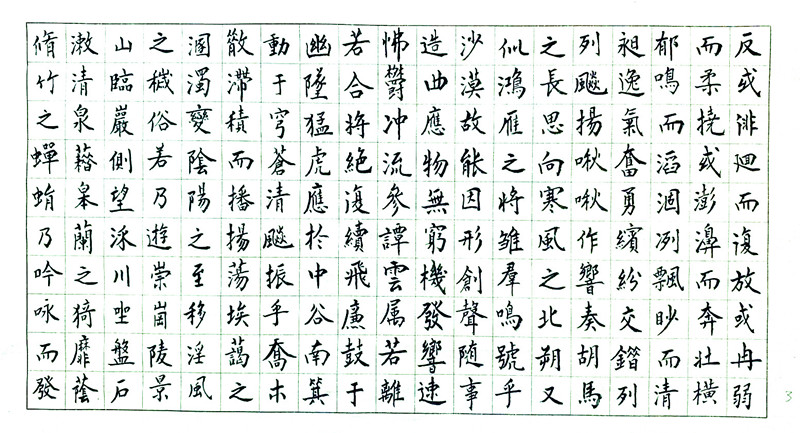 反或徘廻而復放或冉弱
而柔撓或澎濞而奔壯橫
郁鳴而滔涸冽飄眇而清
昶逸氣奮勇繽紛交錯列
列飈揚啾啾作響奏胡馬
之長思向寒風之北朔又
似鴻雁之將雛羣鳴號乎
沙漠故能因形創聲隨事
造曲應物無窮機發響速
怫欝冲流參譚雲属若離
若合將絕復續飛廉鼓于
幽墜猛虎應於中谷南箕
動于穹蒼清飈振乎喬木
散滯積而播揚蕩埃藹之
溷濁變陰陽之至移淫風
之穢俗若乃遊崇崗陵景
山臨巖側望泝川坐盤石
漱清泉藉皋蘭之猗靡蔭
脩竹之蟬蜎乃吟咏而發
3